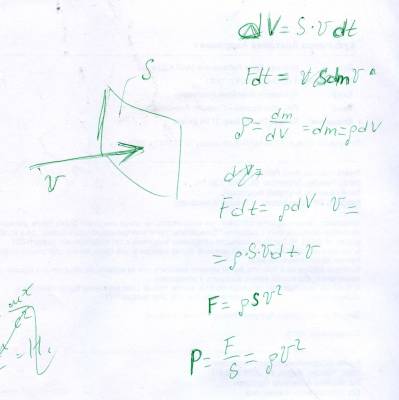 dV = S · v dt
S
Fdt = dm v
ρ = dm/dV = dm = ρdV
v
Fdt = ρdV · v =
= ρ · S · vdt v
F = ρSv²
P = F/S = ρv²